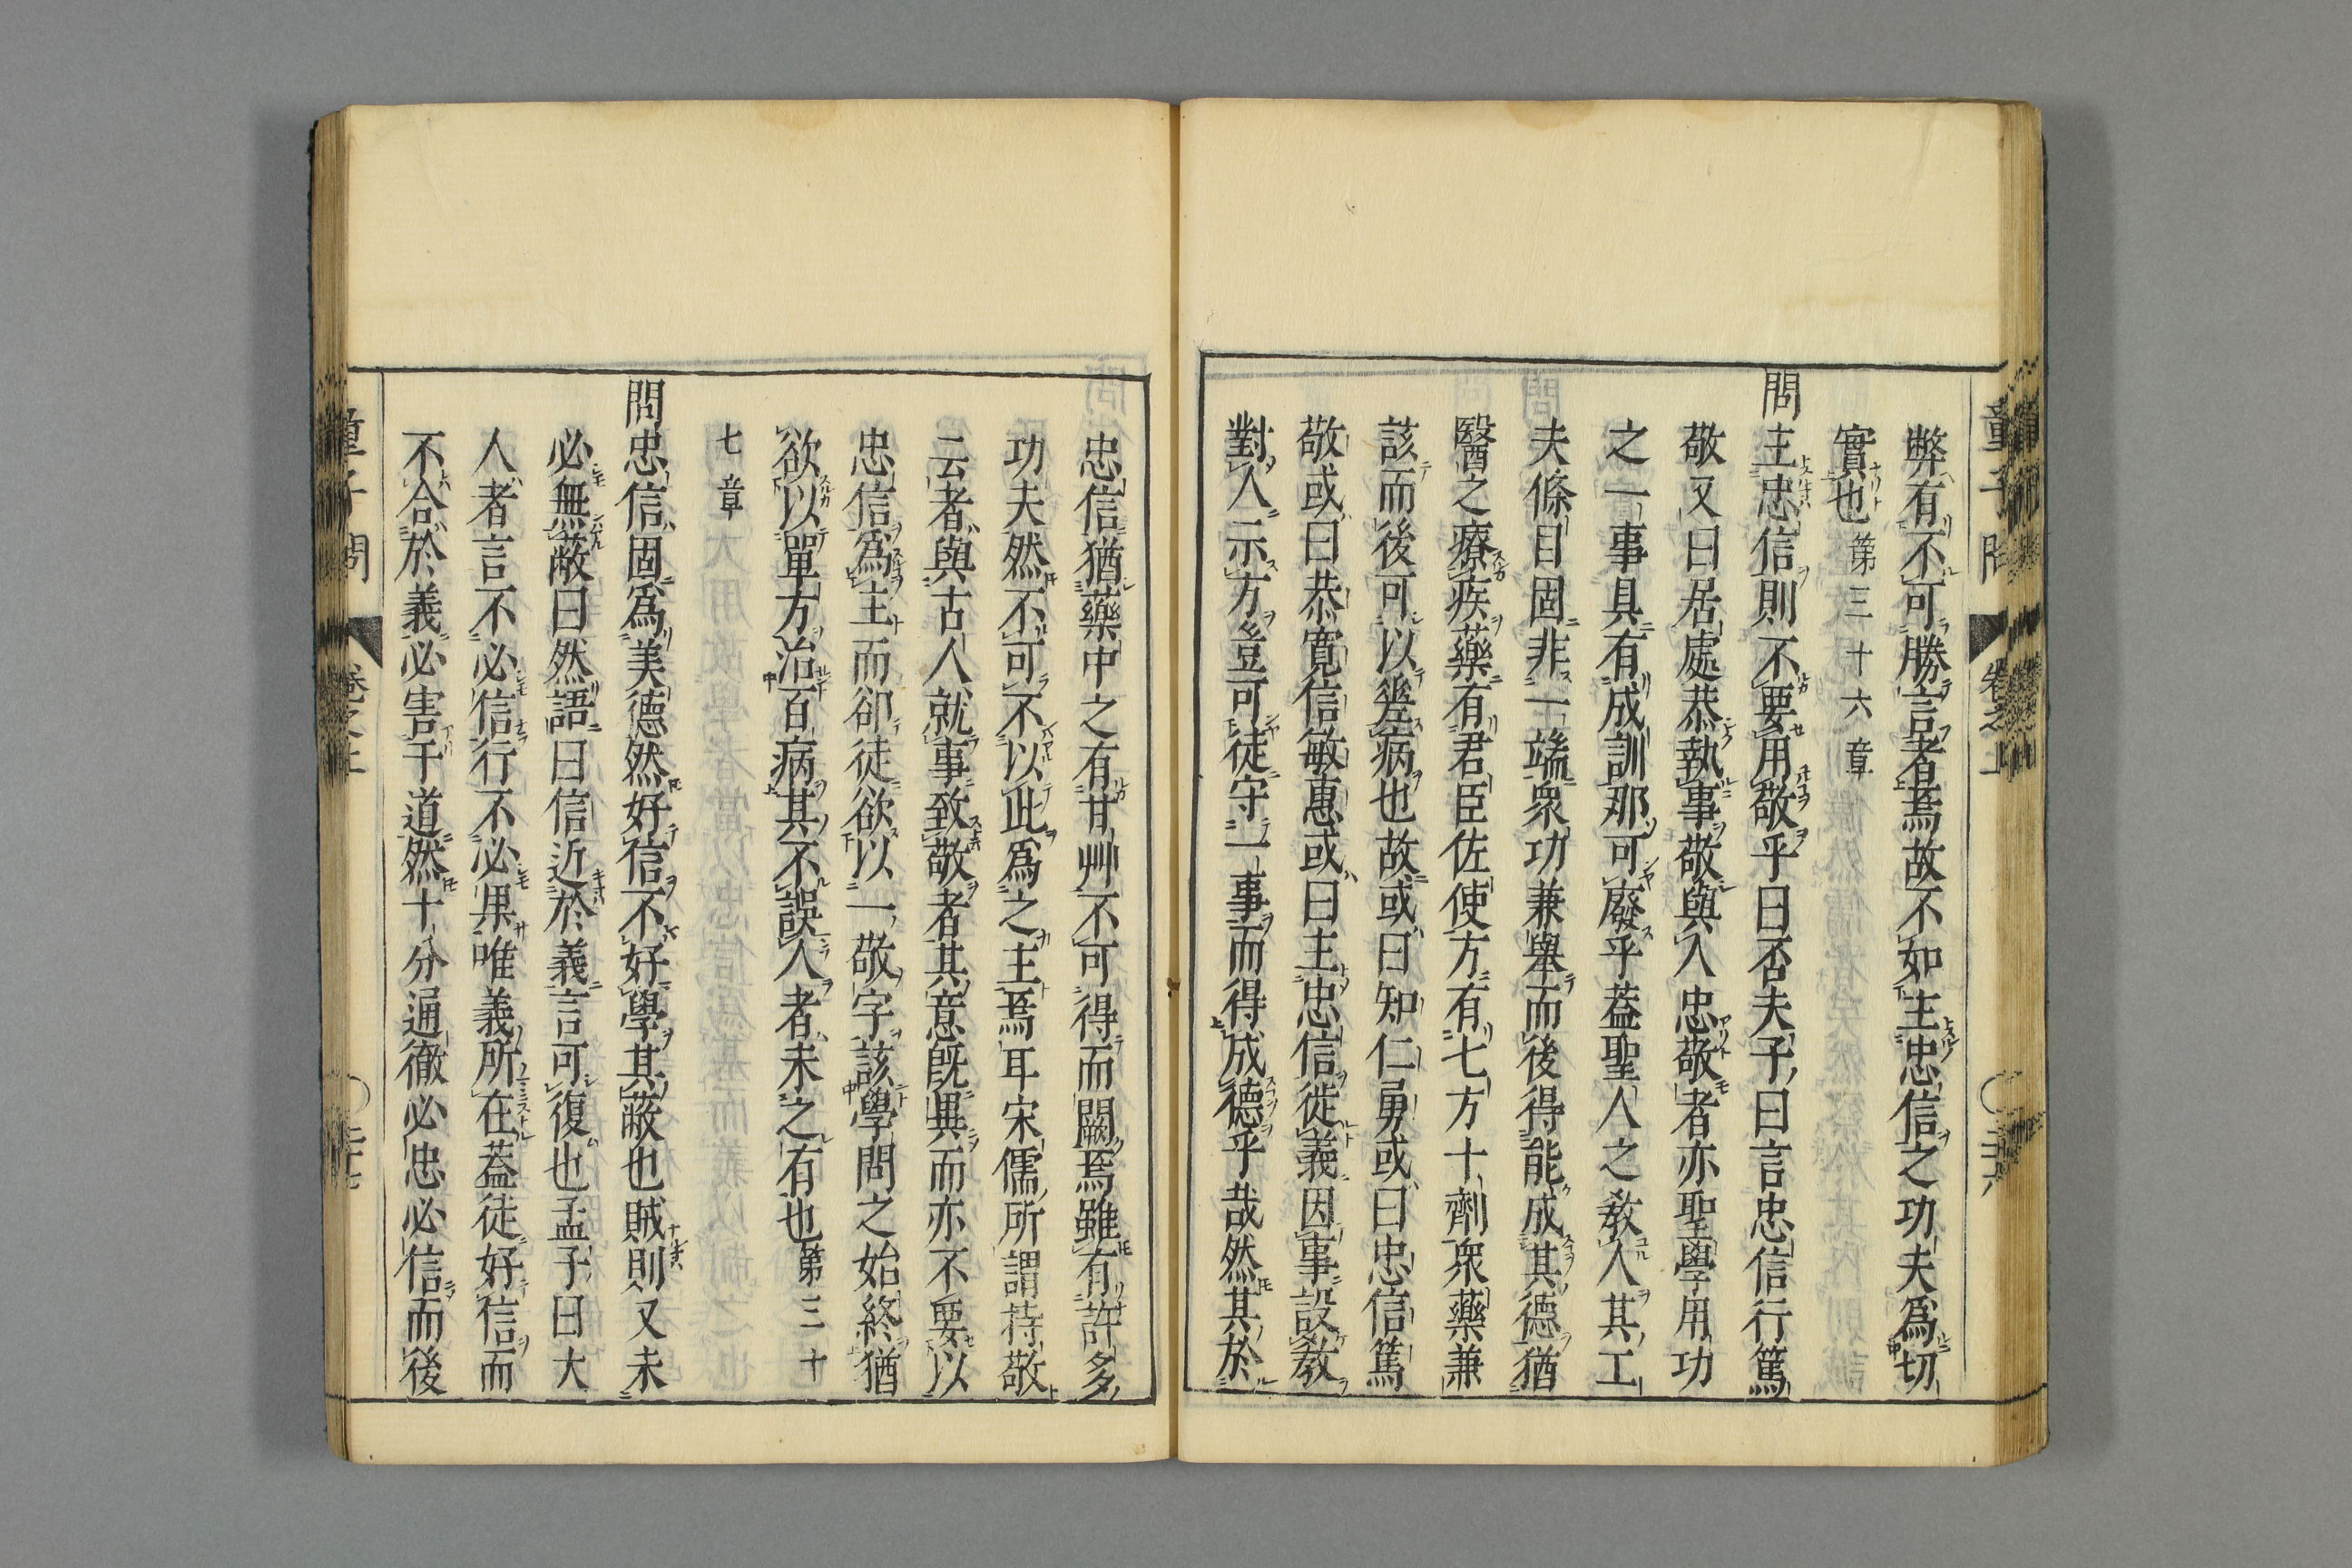 弊有不可勝言者焉故不如主忠信之功夫爲切
實也第三十六章
問主忠信則不要用敬乎曰否夫子曰言忠信行篤
敬又曰居處恭執事敬與人忠敬者亦聖學用功
之一事具有成訓那可廢乎蓋聖人之敎人其工
夫條目固非一端衆功兼擧而後得能成其德猶
醫之療疾藥有君臣佐使方有七方十劑衆藥兼
該而後可以瘥病也故或曰知仁勇或曰忠信篤
敬或曰恭寬信敏惠或曰主忠信徙義因事設敎
對人示方豈可徒守一事而得成德乎哉然其於
忠信猶藥中之有甘艸不可得而闕焉雖有許多
功夫然不可不以此爲之主焉耳宋儒所謂持敬
云者與古人就事致敬者其意既異而亦不要以
忠信爲主而卻徒欲以一敬字該學問之始終猶
欲以單方治百病其不誤人者未之有也第三十
七章
問忠信固爲美德然好信不好學其蔽也賊則又未
必無蔽曰然語曰信近於義言可復也孟子曰大
人者言不必信行不必果唯義所在蓋徒好信而
不合於義必害于道然十分通徹必忠必信而後
童子問 卷之上